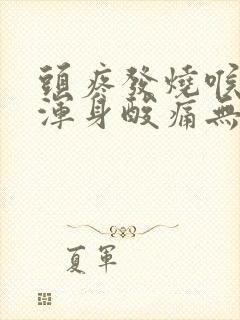 頭疼發燒喉
渾身酸痛無
夏軍